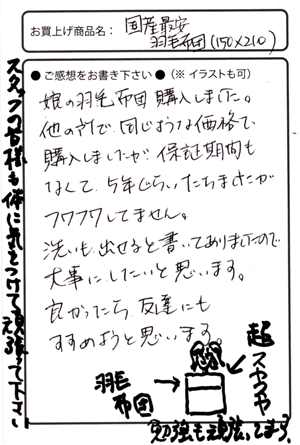 お買上げ商品名：国産最安
羽毛布団(150×210)
●ご感想をお書き下さい●(※イラストも可)
娘の羽毛布団購入しました。
他の所で、同じような価格で
購入しましたが、保証期間も
なくて、5年くらいたちましたが
フワフワしてません。
洗いも出せると書いてありましたので
大事にしたいと思います。
良かったら、友達にも
すすめようと思います。
羽毛
布団
超
スヤスヤ
勉強も頑張ってます
スタッフの皆様も体に気をつけて頑張って下さい